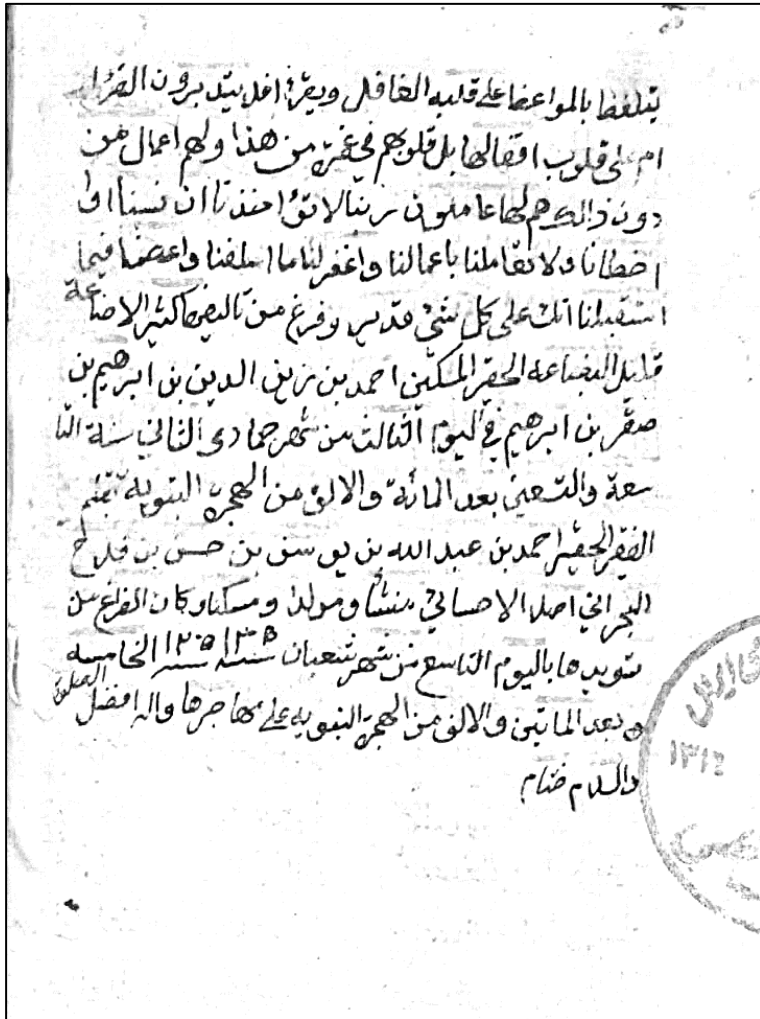 يتلفظ بالمواعظ على قلبه الغافل ويقرأ افلا يتدبرون القرا
ام على قلوب اقفالها بل قلوبهم في غمرة من هذا ولهم اعمال من
دون ذالك هم لها عاملون ربنا لا تؤاخذنا ان نسينا او
اخطانا ولا تعاملنا باعمالنا واغفر لنا ما اسلفنا واعصمنا فيما
استقبلنا انك على كل شئ قدير وفرغ من تاليفها كثير الاضاعة
قليل البضاعة الحقير المسكين احمد بن زين الدين بن ابرهيم بن
صقر بن ابرهيم في اليوم الثالث من شهر جمادى الثاني سنة التا
سعة والتسعين بعد المائة والالف من الهجرة النبوية بقلم
الفقير الحقير احمد بن عبد الله بن يوسف بن حسن بن فلاح
البحراني اصلا الاحسائي منشأ ومولدا ومسكنا وكان الفراغ من
تسويدها باليوم التاسع من شهر شعبان سنة ١٢٠٥ الخامسه
بعد الماتين والالف من الهجرة النبويه على مهاجرها واله افضل الصلوة
والسلام ختام
١٣١٢